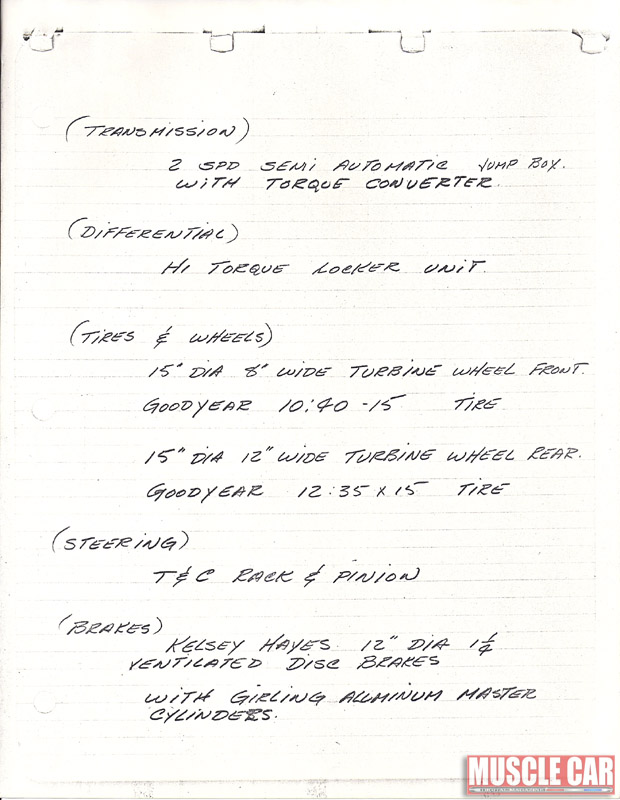 (TRANSMISSION)
2 SPD SEMI AUTOMATIC JUMP BOX.
WITH TORQUE CONVERTER.
(DIFFERENTIAL)
HI TORQUE LOCKER UNIT.
(TIRES & WHEELS)
15" DIA 8" WIDE TURBINE WHEEL FRONT.
GOODYEAR 10:40 -15 TIRE
15" DIA 12" WIDE TURBINE WHEEL REAR.
GOODYEAR 12:35 x 15 TIRE
(STEERING)
T & C RACK & PINION
(BRAKES)
KELSEY HAYES 12" DIA 1 1/4
VENTILATED DISC BRAKES
WITH GIRLING ALUMINUM MASTER
CYLINDERS.
MUSCLE CAR